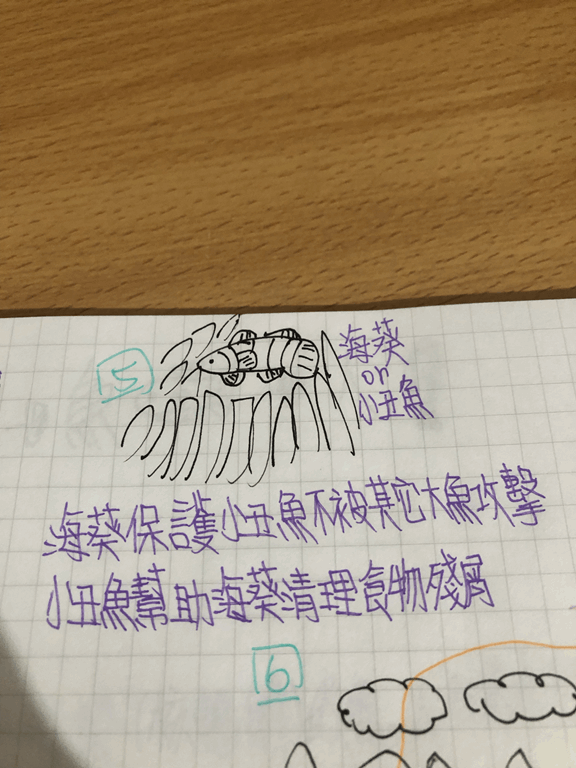 5
海葵
on
小丑魚
海葵保護小丑魚不被其它大魚攻擊
小丑魚幫助海葵清理食物殘屑
6